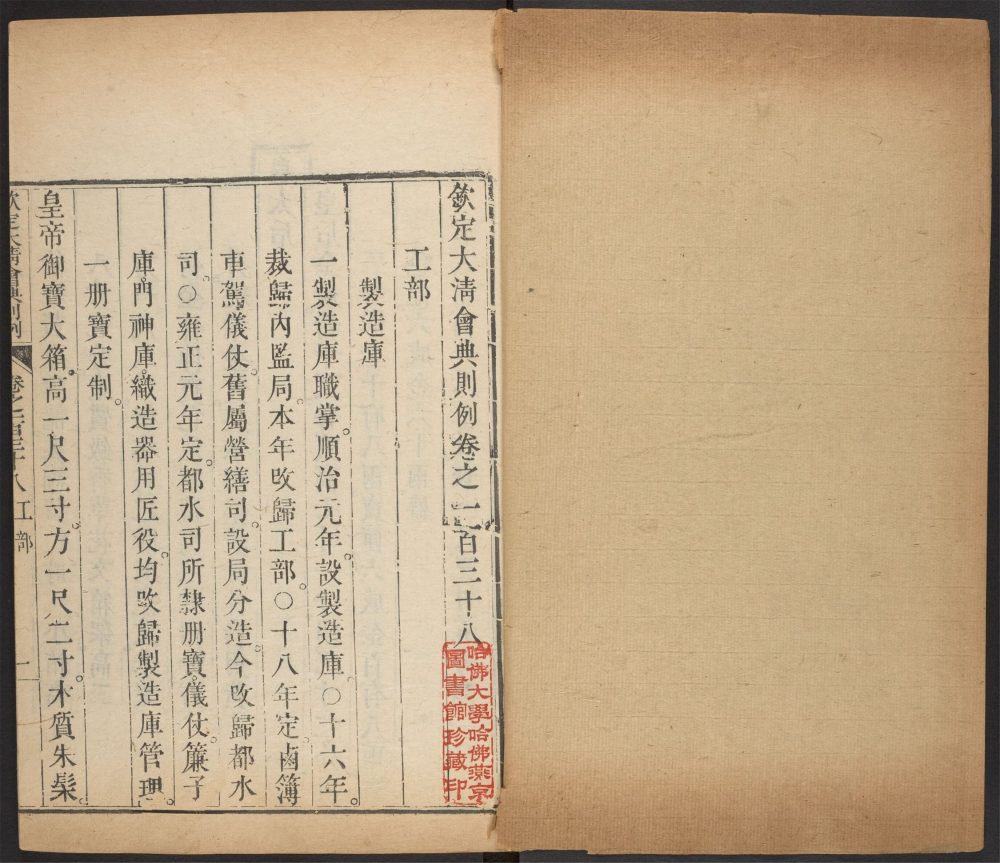 欽定大淸會典則例卷之一百三十八
工部
製造庫
一製造庫職掌順治元年設製造庫○十六年
裁歸內監局本年改歸工部○十八年定鹵簿
車駕儀仗舊屬營繕司設局分造今改歸都水
司○雍正元年定都水司所隸册寶儀仗簾子
庫門神庫織造器用匠役均改歸製造庫管理
一册寶定制
皇帝御寶大箱高一尺三寸方一尺二寸木質朱髹
欽定大淸會典則例
卷之一百三十八工部
一
哈佛大學哈佛燕京
圖書館珍藏印